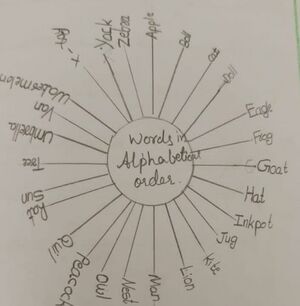 Words in
Alphabetical
order.
Apple
Ball
Cat
Doll
Eagle
Frog
Goat
Hat
Inkpot
Jug
Kite
Lion
Man
Nest
Owl
Peacock
Quil
Rat
Sun
Tree
Umbrella
Van
Watermelon
Yack
Zebra